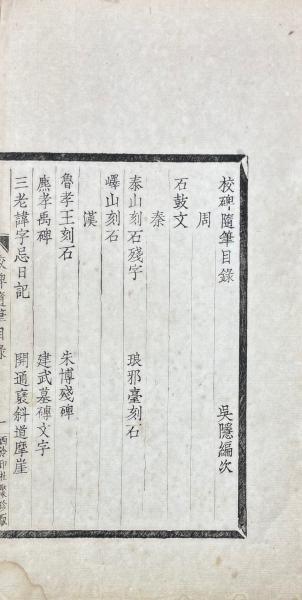 校碑隨筆目錄 吳隱編次
周
石鼓文
秦
泰山刻石殘字 琅邪臺刻石
嶧山刻石
漢
魯孝王刻石 朱博殘碑
麃孝禹碑 建武墓磚文字
三老諱字忌日記 開通褒斜道摩崖
校碑隨筆目錄 一 西泠印社聚珍版